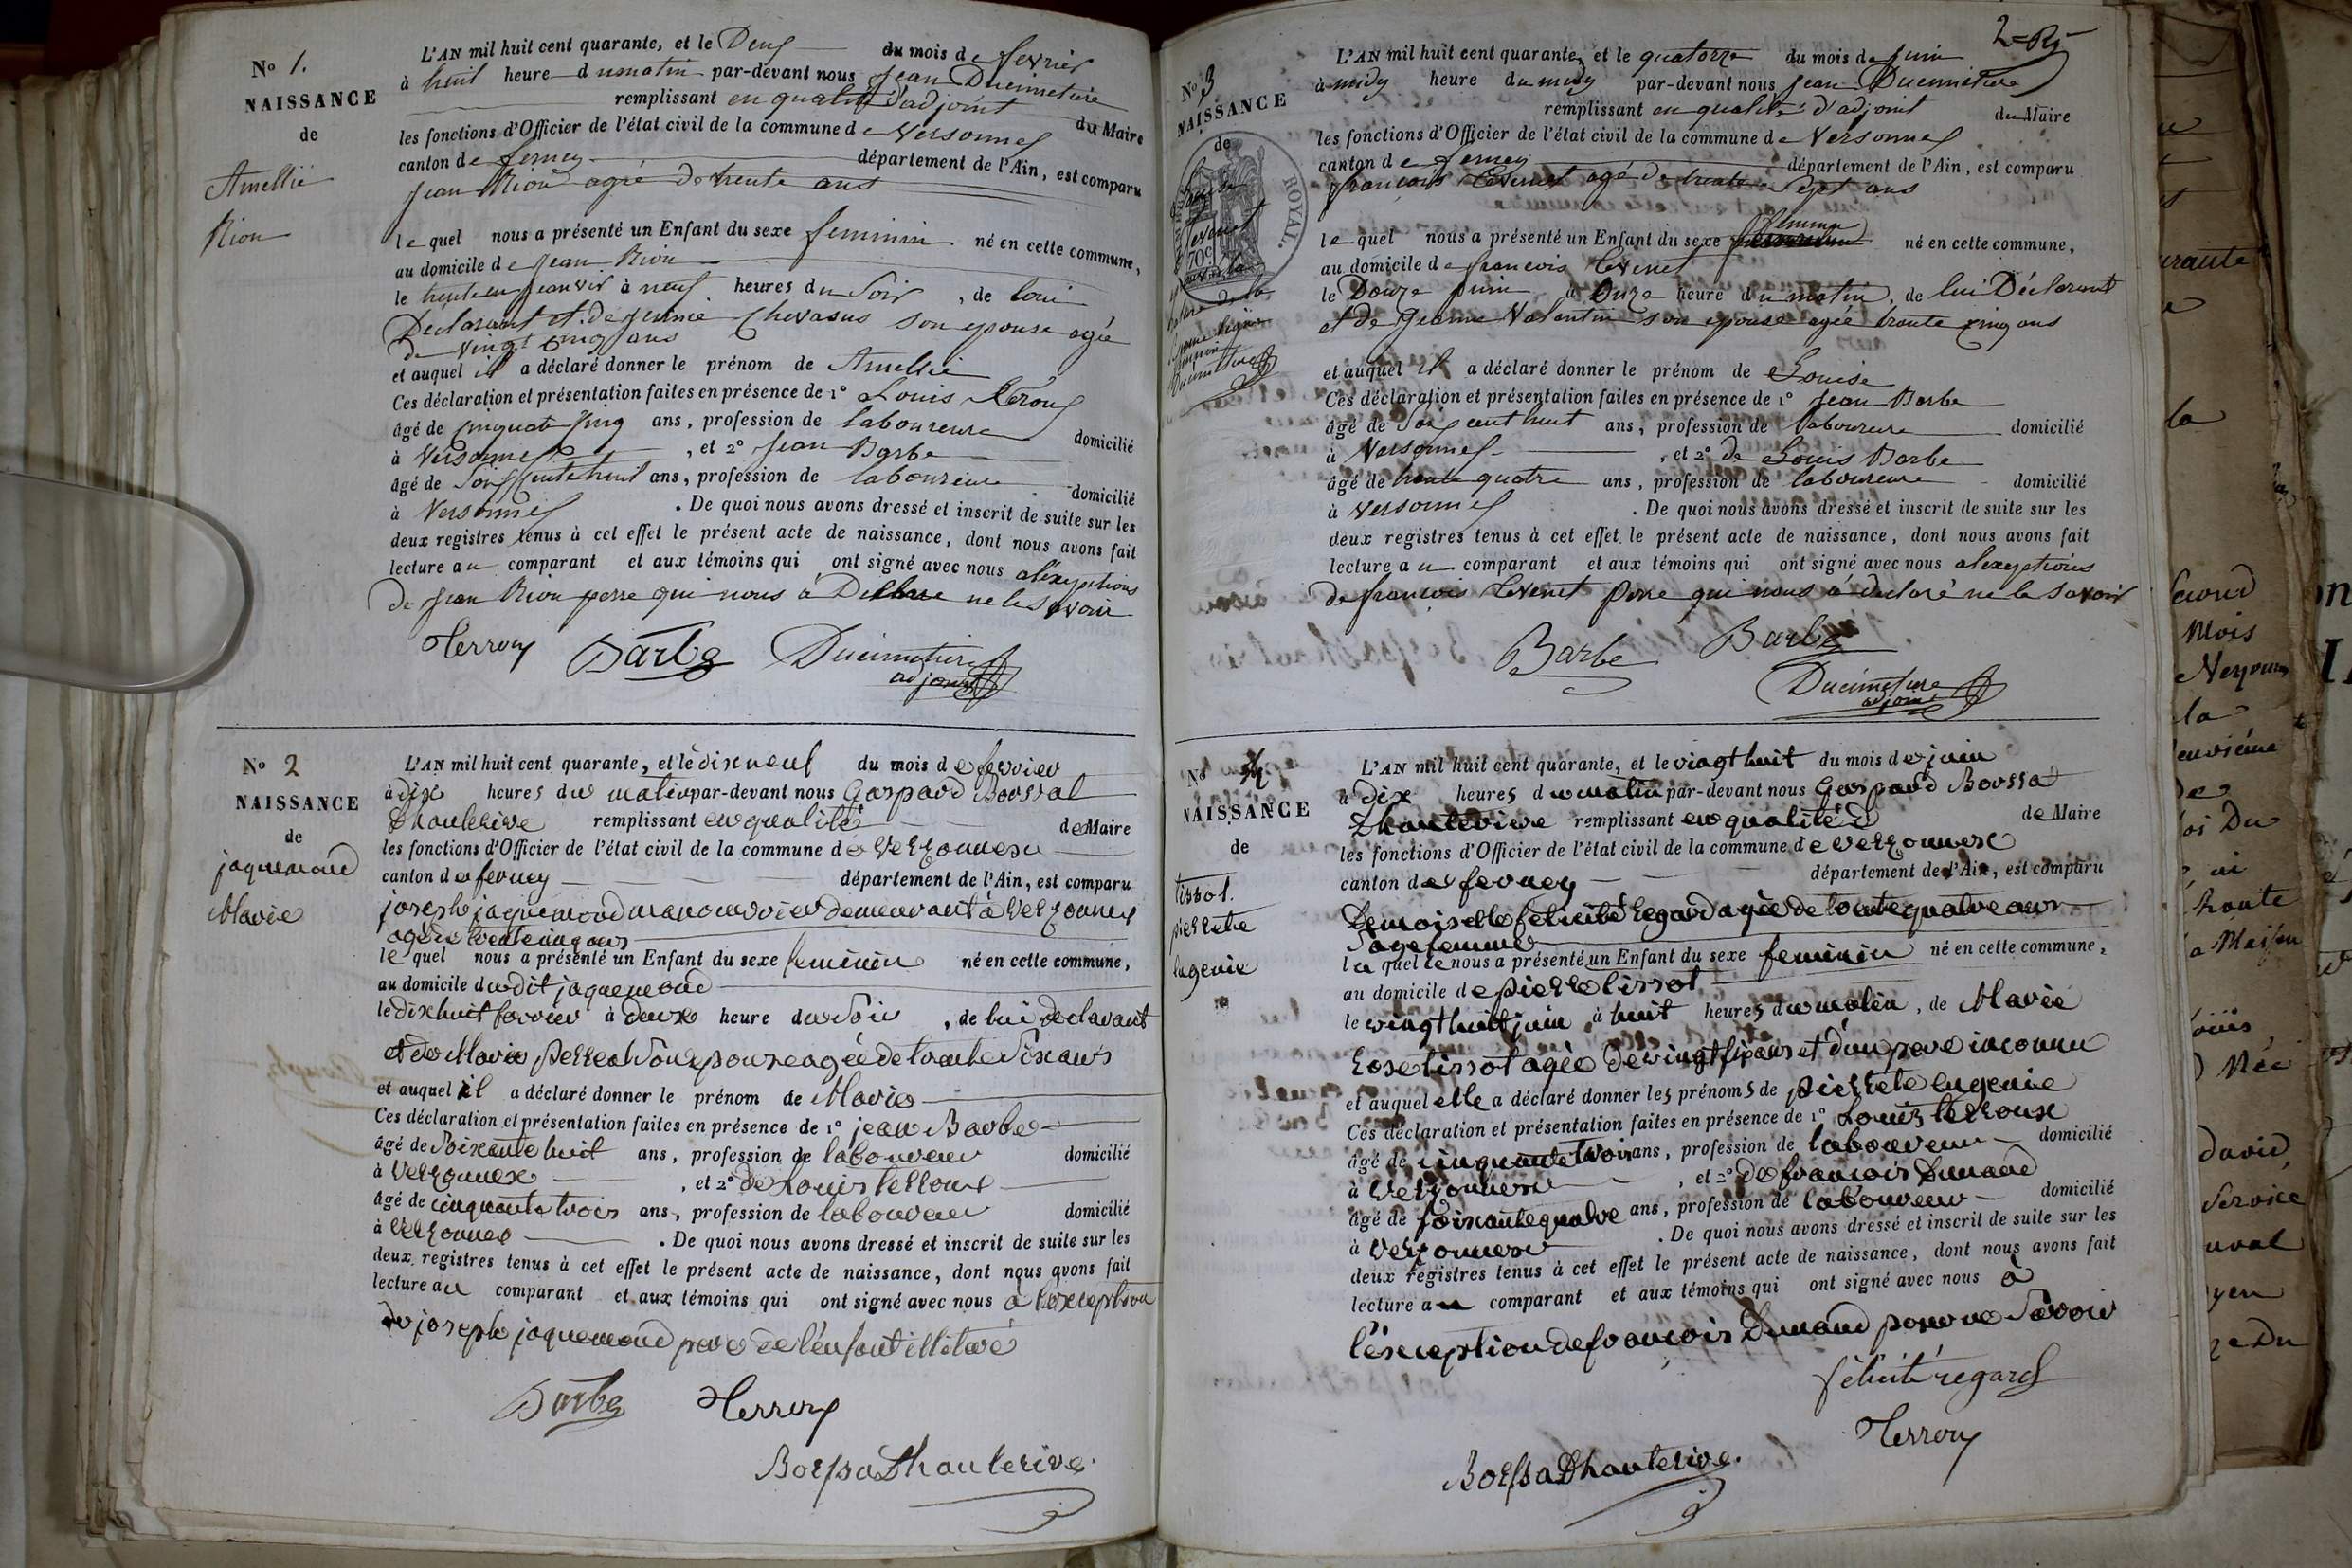 No 1.
NAISSANCE
de
Amellie
Rion
L'AN mil huit cent quarante, et le Deux du mois de fevrier
à huit heure du matin par-devant nous Jean Ducimetiere
remplissant en qualité d'adjoint du Maire
les fonctions d'Officier de l'état civil de la commune de Versonnex
canton de ferney département de l'Ain, est comparu
Jean Rion agée de trente ans
le quel nous a présenté un Enfant du sexe feminin né en cette commune,
au domicile de Jean Rion
le trente en Janvir à neuf heures du Soir, de loui
Declarant et de Jennie Chevasus son epouse agée
de vingt cinq ans
et auquel il a déclaré donner le prénom de Amellie
Ces déclaration et présentation faites en présence de 1° Louis
âgé de ans, profession de laboureure domicilié
à Versonnex, et 2° Jean Barbe
âgé de ans, profession de laboureure domicilié
à Versonnex. De quoi nous avons dressé et inscrit de suite sur les
deux registres tenus à cet effet le présent acte de naissance, dont nous avons fait
lecture au comparant et aux témoins qui ont signé avec nous
de Jean Rion perre qui nous à ne le savoir
Terroux Barbe Ducimetiere
adjoint
No 2
NAISSANCE
de
jaquemoud
Marie
L'AN mil huit cent quarante, et le dixneuf du mois de fevrier
à dix heures du matin par-devant nous Gaspard Boussat
Dhauterive remplissant en qualité de Maire
les fonctions d'Officier de l'état civil de la commune de Verzonnex
canton de ferney département de l'Ain, est comparu
joseph jaquemoud manouvrier demeurant à Verzonnex
agé de trente cinq ans
le quel nous a présenté un Enfant du sexe feminin né en cette commune,
au domicile dudit jaquemoud
le dixhuit fevrier à deux heure du Soir, de lui declarant
et de Marie Perreal Son epouse agée de trente Six ans
et auquel il a déclaré donner le prénom de Marie
Ces déclaration et présentation faites en présence de 1° jean Barbe
âgé de Soixante huit ans, profession de laboureur domicilié
à Verzonnex, et 2° de Louis terroux
âgé de cinquante trois ans, profession de laboureur domicilié
à Verzonnex. De quoi nous avons dressé et inscrit de suite sur les
deux registres tenus à cet effet le présent acte de naissance, dont nous avons fait
lecture au comparant et aux témoins qui ont signé avec nous à l'exception
de joseph jaquemoud pere de l'enfant illitaré
Barbe Terroux
Boussa Dhauterive
No 3
NAISSANCE
de
ROYAL.
70c
L'AN mil huit cent quarante, et le quatorze du mois de Juin
à midy heure du midy par-devant nous Jean Ducimetiere
remplissant en qualité d'adjoint du Maire
les fonctions d'Officier de l'état civil de la commune de Versonnex
canton de ferney département de l'Ain, est comparu
françois Levenet agé de trente Sept ans
le quel nous a présenté un Enfant du sexe né en cette commune,
au domicile de francois Levenet
le Douze Juin à Onze heure du matin, de lui Déclarant
et de Jeanne Valentin son epouse agée trente cinq ans
et auquel il a déclaré donner le prénom de Louise
Ces déclaration et présentation faites en présence de 1° Jean Barbe
âgé de ans, profession de laboureure domicilié
à Versonnex, et 2° de Louis Barbe
âgé de trente quatre ans, profession de laboureure domicilié
à Versonnex. De quoi nous avons dressé et inscrit de suite sur les
deux registres tenus à cet effet le présent acte de naissance, dont nous avons fait
lecture au comparant et aux témoins qui ont signé avec nous
de françois Levenet pere qui nous à declaré ne le savoir
Barbe Barbe
Ducimetiere
adjoint
No 4
NAISSANCE
de
tissot
pierrette
eugenie
L'AN mil huit cent quarante, et le vingt huit du mois de juin
à dix heures du matin par-devant nous Gaspard Boussat
Dhauterive remplissant en qualité de Maire
les fonctions d'Officier de l'état civil de la commune de Verzonnex
canton de ferney département de l'Ain, est comparu
Demoiselle felicité Regard agée de trente quatre ans
Sage femme
la quelle nous a présenté un Enfant du sexe feminin né en cette commune,
au domicile de pierre tissot
le vingt huit juin à huit heures du matin, de Marie
Rose tissot agée de vingt six ans et d'un pere inconnu
et auquel elle a déclaré donner les prénoms de pierrete eugenie
Ces déclaration et présentation faites en présence de 1° Louis terroux
âgé de cinquante trois ans, profession de laboureur domicilié
à Verzonnex, et 2° de francois Dunand
âgé de soixante quatre ans, profession de laboureur domicilié
à Verzonnex. De quoi nous avons dressé et inscrit de suite sur les
deux registres tenus à cet effet le présent acte de naissance, dont nous avons fait
lecture au comparant et aux témoins qui ont signé avec nous à
l'exception de francois Dunand pour ne Savoir
félicité regard
Terroux
Boussa Dhauterive